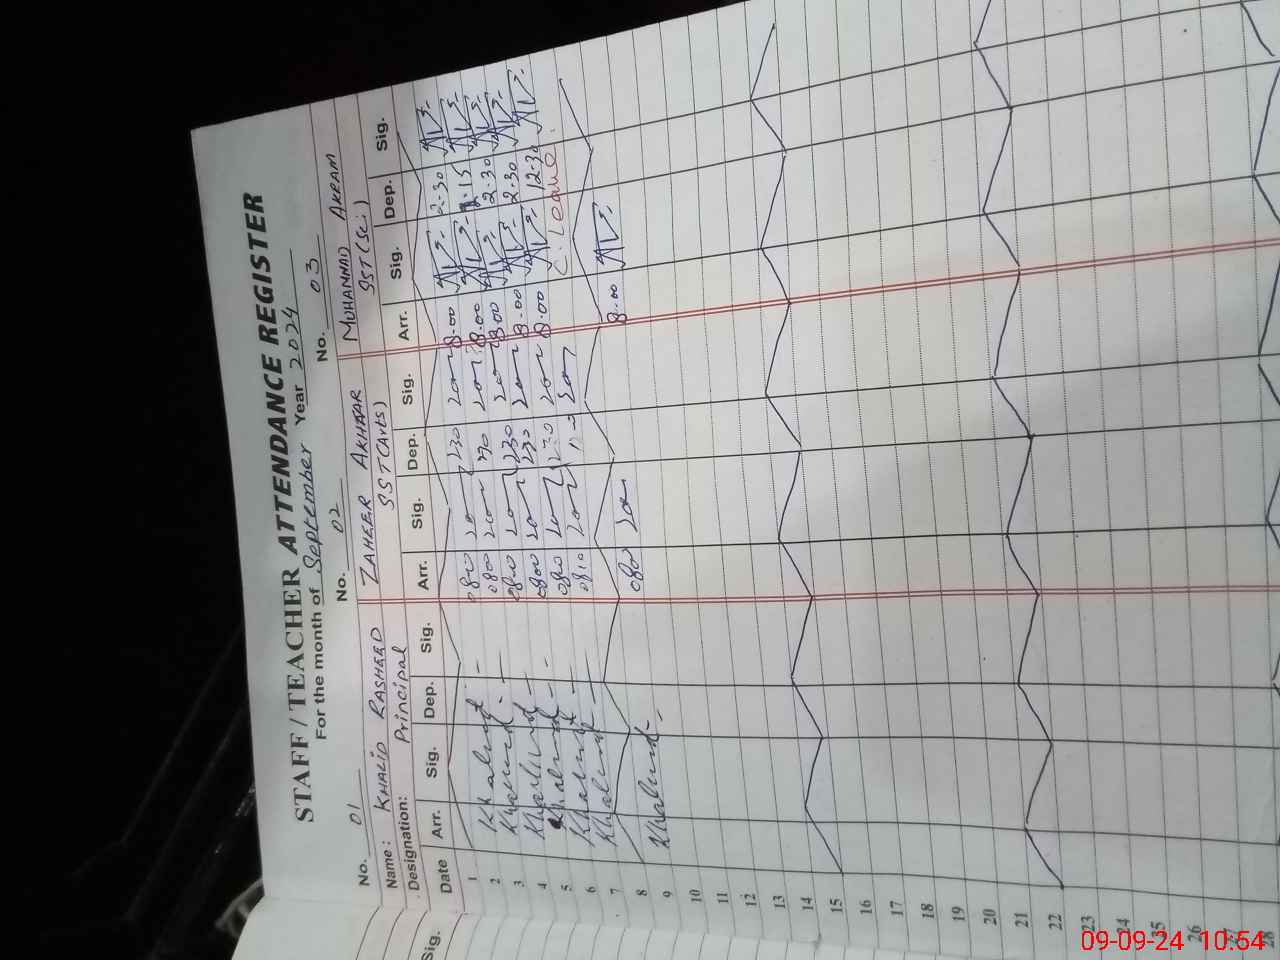 STAFF / TEACHER ATTENDANCE REGISTER
For the month of September Year 2024
No. 01 No. 02 No. 03
Name: KHALID RASHEED ZAHEER AKHTAR MUHAMMAD AKRAM
Designation: Principal SST (Arts) SST (Sci)
Sig. Date Arr. Sig. Dep. Sig. Arr. Sig. Dep. Sig. Arr. Sig. Dep. Sig.
1
2 0800 230 8.00 2.30
3 0800 8.00 2.15
4 0800 230 8.00 2.30
5 0800 230 8.00 2.30
6 080 230 8.00 12.30
7 0810 C. Leave
8
9 0800 8.00
10
11
12
13
14
15
16
17
18
19
20
21
22
23
24
25
26
27
28
09-09-24 10:54